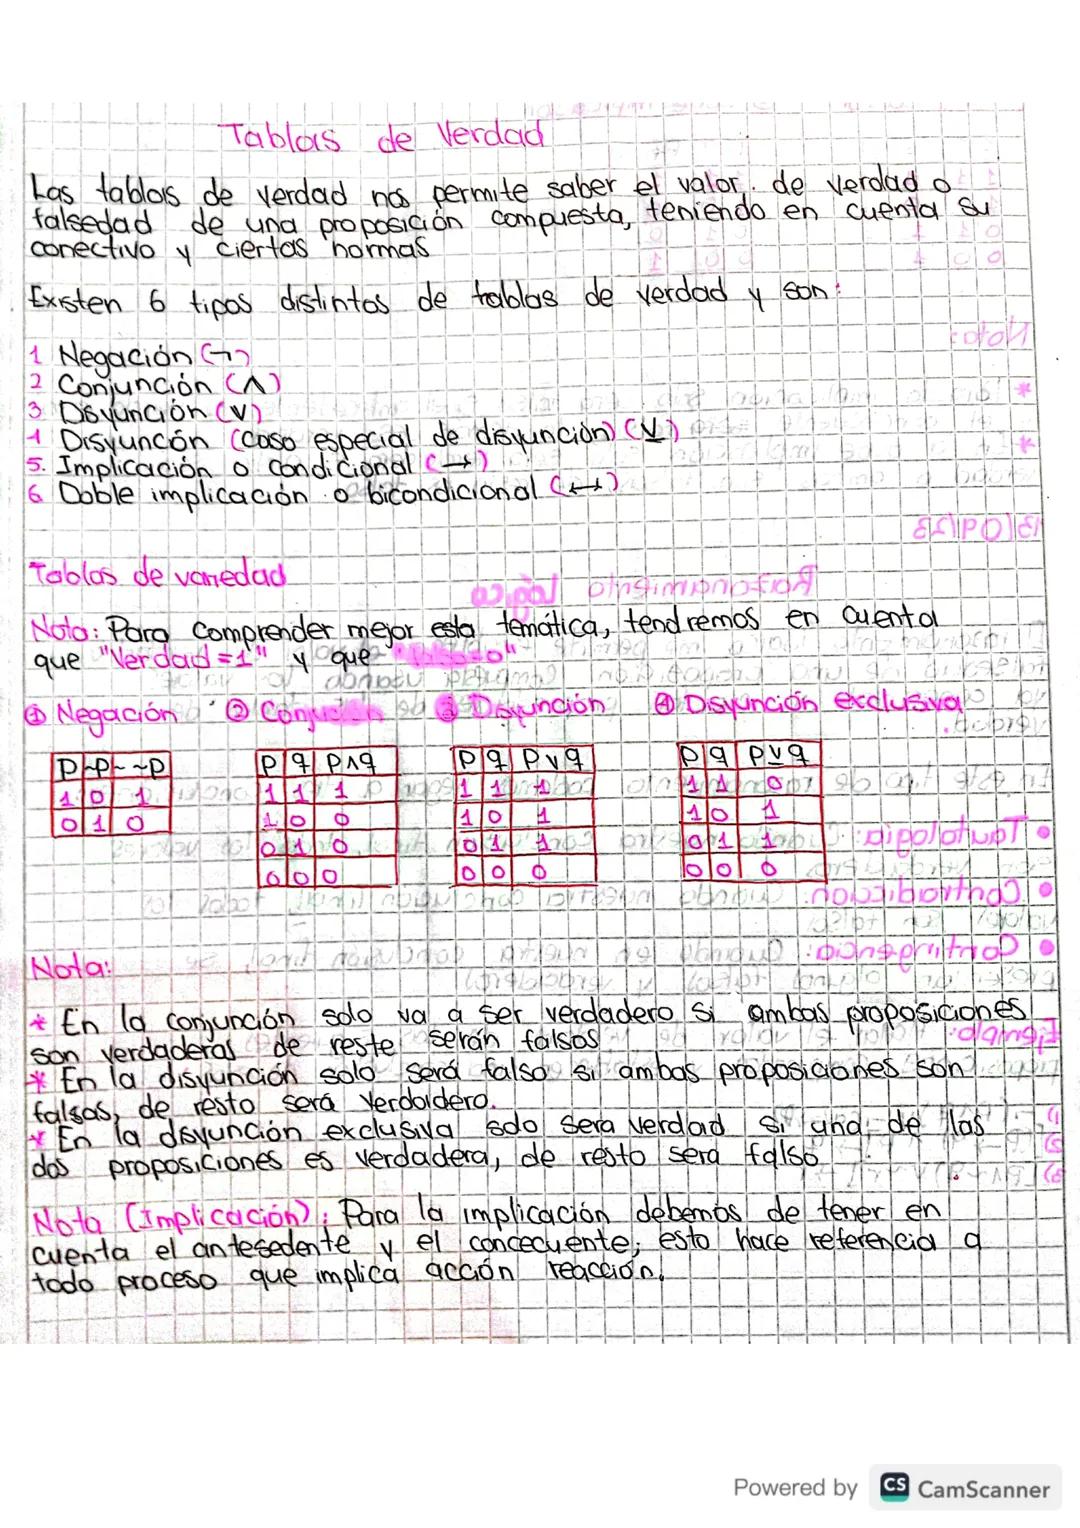 Tablas de Verdad
Las tablas de verdad nos permite saber el valor. de verdad o
falsedad de una proposición compuesta, teniendo en cuenta su
conectivo y ciertas normas
Existen 6 tipos distintos de tablas de verdad y son:
1 Negación (¬)
2 Conjunción (∧)
3 Disyunción (∨)
4 Disyuncón (Caso especial de disyunción) (⊻)
5. Implicación o condicional (→)
6 Doble implicación o bicondicional (↔)
Tablas de variedad
Nota: Para comprender mejor esta temática, tendremos en cuenta
que "Verdad = 1" y que "Falso=0"
① Negación ② Conjución ③ Disyunción ④ Disyunción exclusiva
P ~P ~ ~P
1 0 1
0 1 0
P q P∧q
1 1 1
1 0 0
0 1 0
0 0 0
P q P∨q
1 1 1
1 0 1
0 1 1
0 0 0
P q P⊻q
1 1 0
1 0 1
0 1 1
0 0 0
Nota:
* En la conjunción solo va a ser verdadero si ambas proposiciones
son verdaderas de reste serán falsos
* En la disyunción solo será falso si ambas proposiciones son
falsas, de resto será verdadero.
* En la disyunción exclusiva solo sera verdad si una de las
dos proposiciones es verdadera, de resto será falso
Nota (Implicación): Para la implicación debemos de tener en
cuenta el antesedente y el concecuente; esto hace referencia a
todo proceso que implica acción reacción.
Powered by CS CamScanner